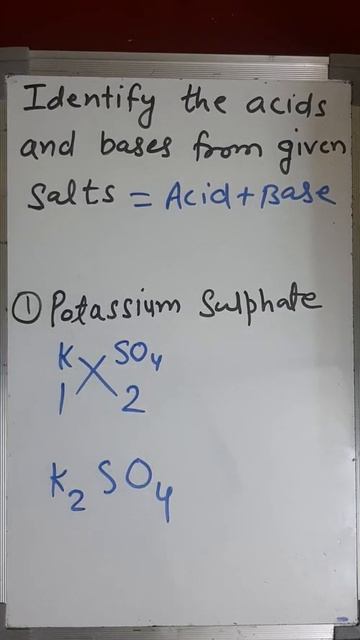 Identify the acids
and bases from given
Salts = Acid + Base
① Potassium Sulphate
K SO₄
1 2
K₂ SO₄